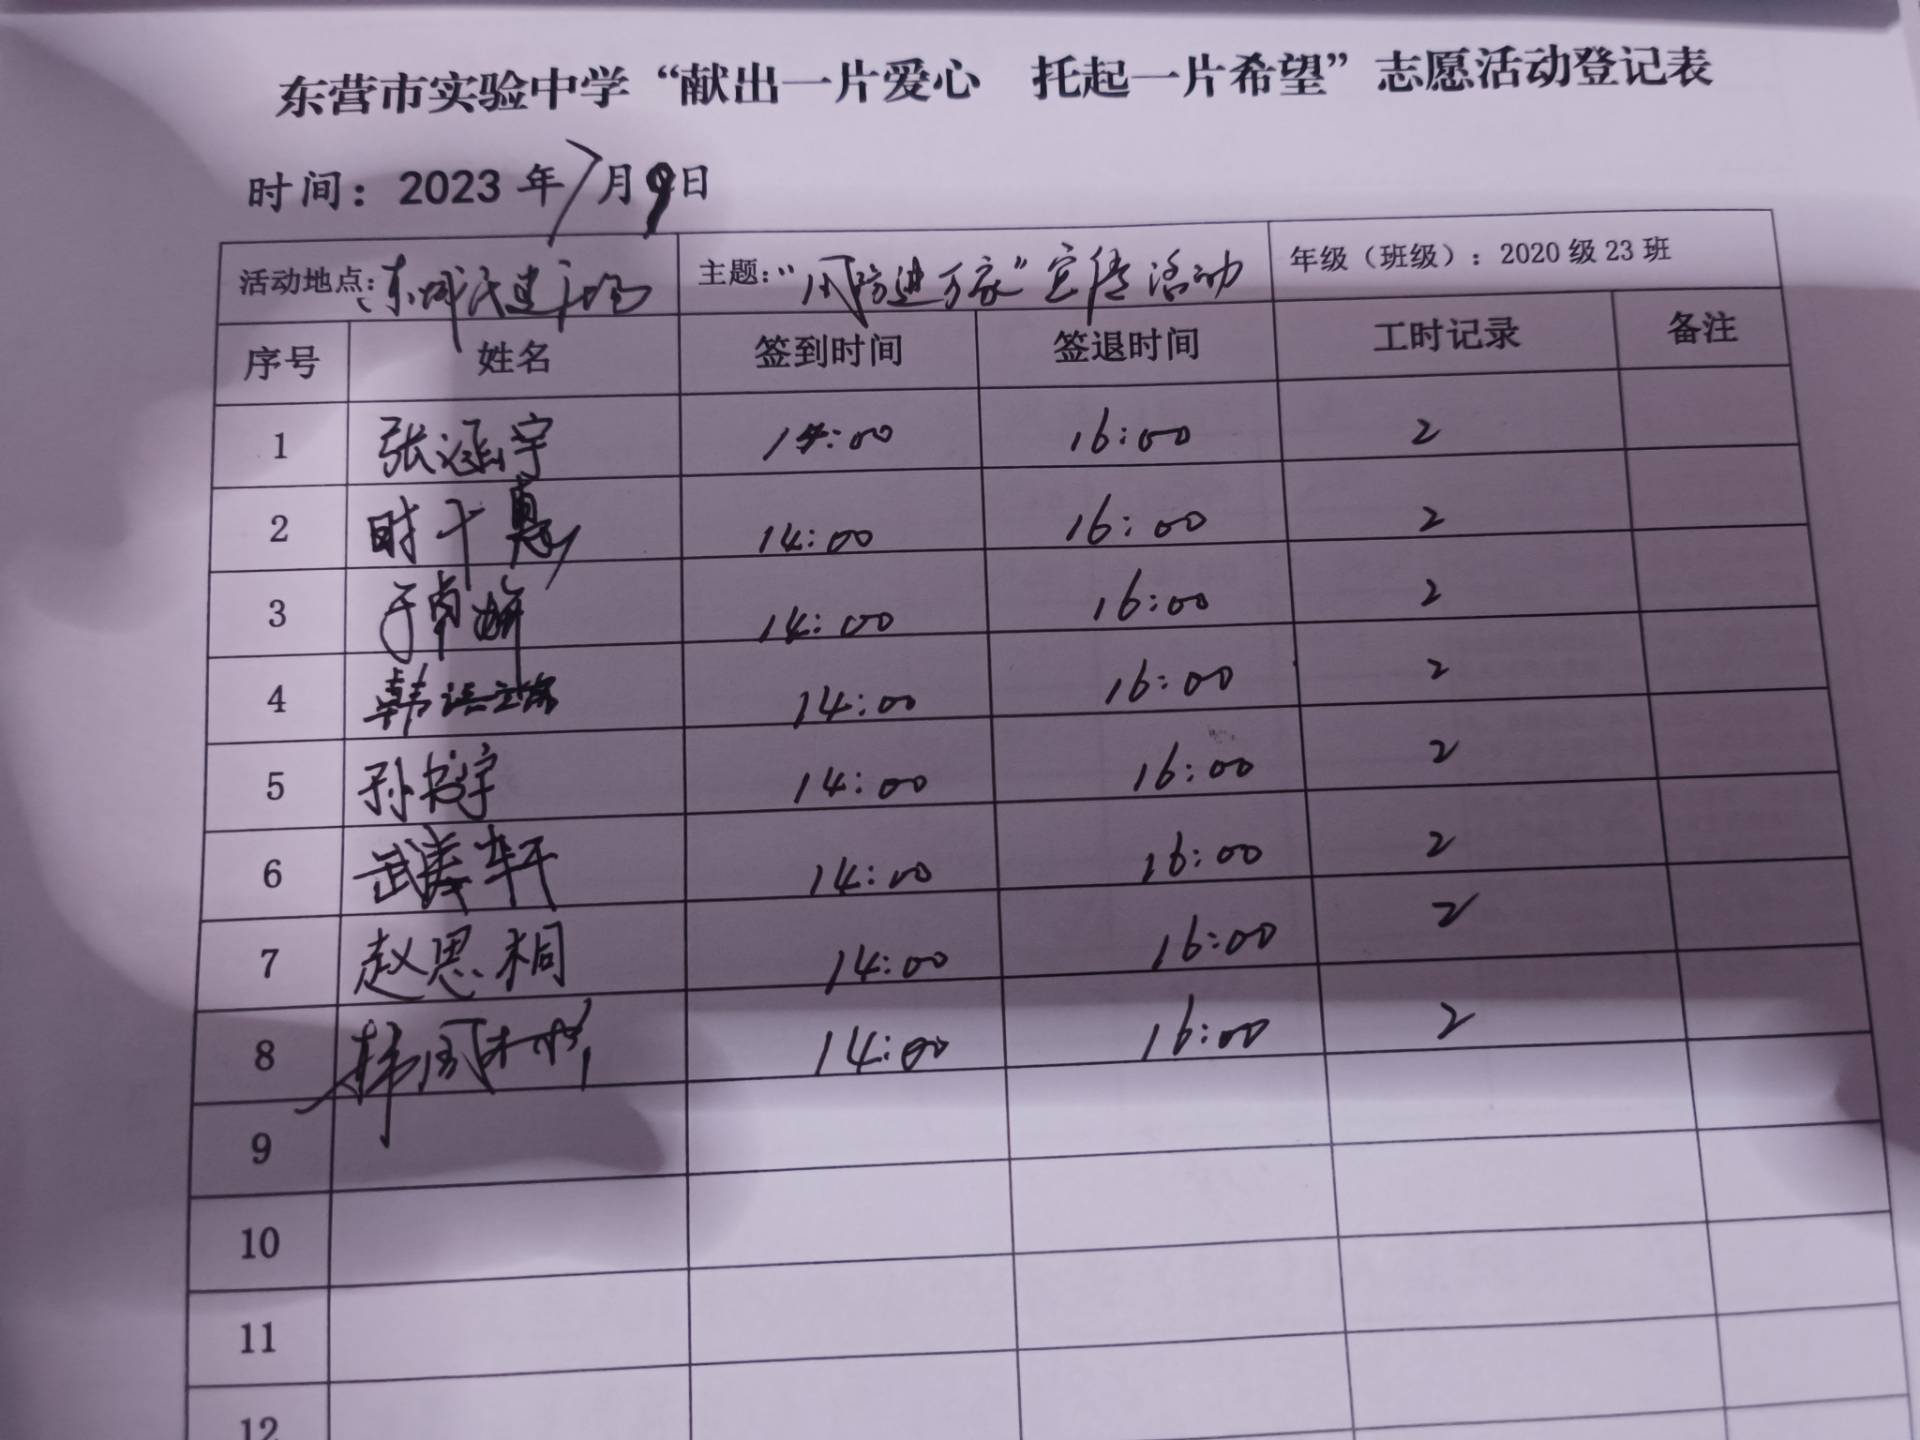 东营市实验中学“献出一片爱心 托起一片希望”志愿活动登记表
时间：2023 年 7 月 9 日
活动地点: 东城 主题: “ 防进万家”宣传活动 年级（班级）: 2020 级 23 班
序号 姓名 签到时间 签退时间 工时记录 备注
1 张涵宇 14:00 16:00 2
2 时千惠 14:00 16:00 2
3 于卓妍 14:00 16:00 2
4 韩语 14:00 16:00 2
5 孙宇 14:00 16:00 2
6 武 轩 14:00 16:00 2
7 赵思桐 14:00 16:00 2
8 韩 14:00 16:00 2
9
10
11
12